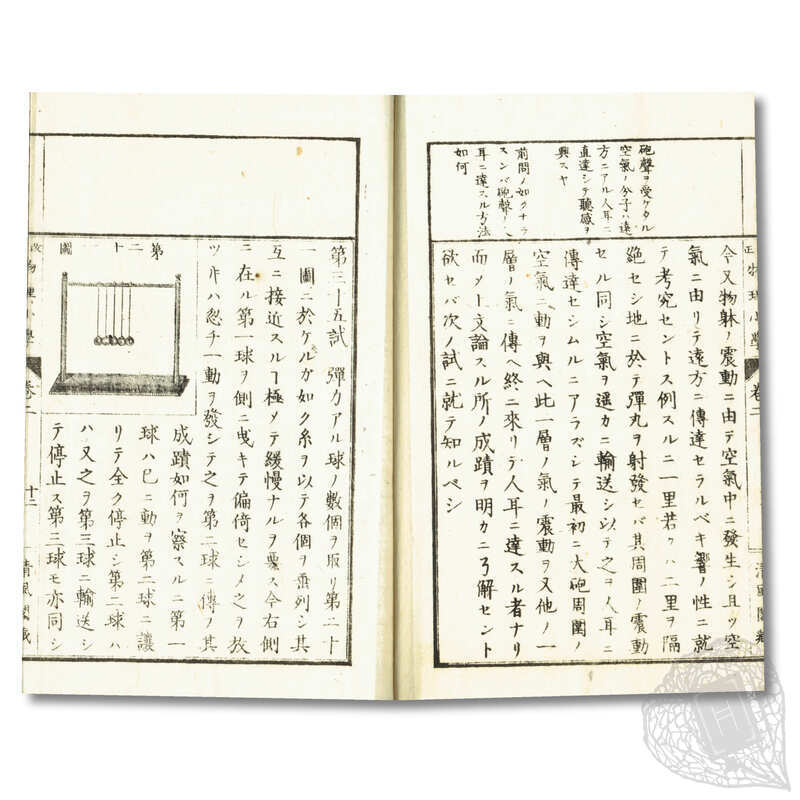 砲聲ヲ受ケタル
空氣ノ分子ハ遠
方ニアル人耳ニ
直達シテ聽感ヲ
興スヤ
前問ノ如クナラ
スンバ砲聲ノ人
耳ニ達スル方法
如何
今又物躰ノ震動ニ由テ空氣中ニ發生シ且ツ空
氣ニ由リテ遠方ニ傳達セラルベキ響ノ性ニ就
テ考究セントス例スルニ一里若クハ二里ヲ隔
絶セシ地ニ於テ彈丸ヲ射發セバ其周圍ノ震動
セル同シ空氣ヲ遥カニ輸送シ以テ之ヲ人耳ニ
傳達セシムルニアラズシテ最初ニ大砲周圍ノ
空氣ニ動ヲ與ヘ此一層ノ氣ノ震動ヲ又他ノ一
層ノ氣ニ傳ヘ終ニ來リテ人耳ニ達スル者ナリ
而メ上文論スル所ノ成蹟ヲ明カニ了解セント
欲セバ次ノ試ニ就テ知ルベシ
物理小學
卷二
十二
第二十一圖
第三十五試 彈力アル球ノ數個ヲ取リ第二十
一圖ニ於ケルガ如ク糸ヲ以テ各個ヲ垂列シ其
互ニ接近スルヿ極メテ緩慢ナルヲ要ス今右側
ニ在ル第一球ヲ側ニ曳キテ偏倚セシメ之ヲ放
ツ片ハ忽チ一動ヲ發シテ之ヲ第二球ニ傳ノ其
成蹟如何ヲ察スルニ第一
球ハ已ニ動ヲ第二球ニ讓
リテ全ク停止シ第二球ハ
ハ又之ヲ第三球ニ輸送シ
テ停止ス第三球モ亦同シ